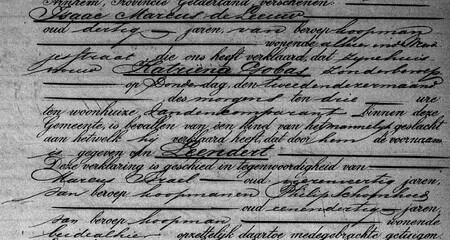 Arnhem, Provincie Gelderland, verschenen:
Isaac Marcus de Leeuw
oud dertig jaren, van beroep koopman
wonende alhier
die ons heeft verklaard, dat zijne huis
vrouw Katriena Gobas, zonder beroep
op Donderdag, den tweeden dezer maand
des morgens ten drie ure
ten woonhuize, binnen deze
Gemeente, is bevallen van een kind van het mannelijk geslacht
aan hetwelk hij verklaard heeft, dat door hem de voornaam
is gegeven van Leendert
Deze verklaring is geschied in tegenwoordigheid van
Marcus Israel oud jaren,
van beroep koopman en Philip
oud eenendertig jaren,
van beroep koopman wonende
beide alhier opzettelijk daartoe medegebrachte getuigen.